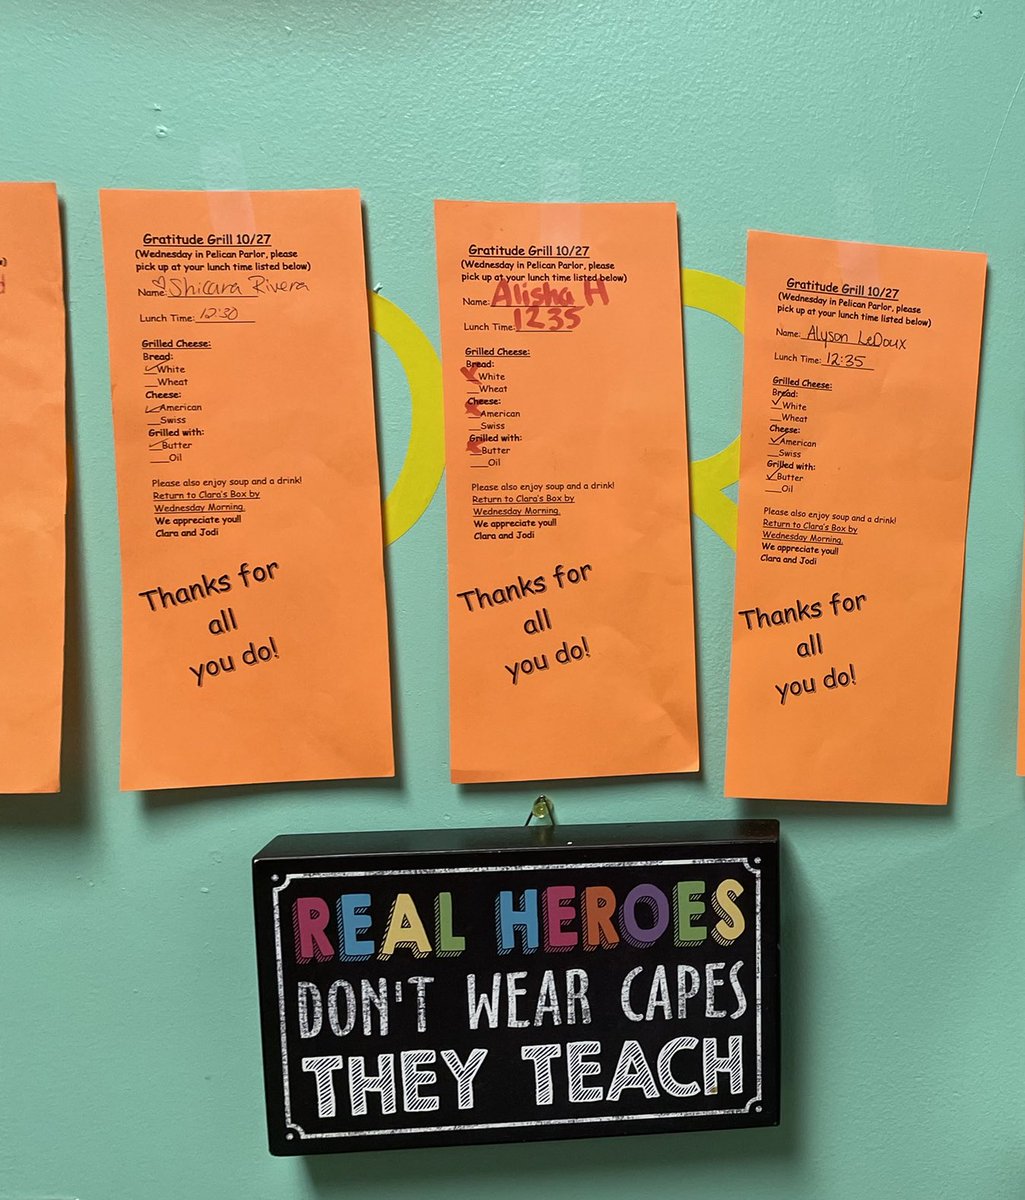 Gratitude Grill 10/27
(Wednesday in Pelican Parlor, please
pick up at your lunch time listed below)
Name: Shicara Rivera
Lunch Time: 12:30
Grilled Cheese:
Bread:
White
Wheat
Cheese:
American
Swiss
Grilled with:
Butter
Oil
Please also enjoy soup and a drink!
Return to Clara's Box by
Wednesday Morning.
We appreciate you!!
Clara and Jodi
Thanks for
all
you do!
Gratitude Grill 10/27
(Wednesday in Pelican Parlor, please
pick up at your lunch time listed below)
Name: Alisha H
Lunch Time: 1235
Grilled Cheese:
Bread:
White
Wheat
Cheese:
American
Swiss
Grilled with:
Butter
Oil
Please also enjoy soup and a drink!
Return to Clara's Box by
Wednesday Morning.
We appreciate you!!
Clara and Jodi
Thanks for
all
you do!
Gratitude Grill 10/27
(Wednesday in Pelican Parlor, please
pick up at your lunch time listed below)
Name: Alyson LeDoux
Lunch Time: 12:35
Grilled Cheese:
Bread:
White
Wheat
Cheese:
American
Swiss
Grilled with:
Butter
Oil
Please also enjoy soup and a drink!
Return to Clara's Box by
Wednesday Morning.
We appreciate you!!
Clara and Jodi
Thanks for
all
you do!
REAL HEROES
DON'T WEAR CAPES
THEY TEACH